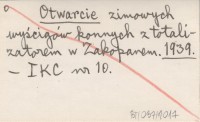 Otwarcie zimowych
wyścigów konnych z totali-
zatorem w Zakopanem. 1939.
– IKC nr 10.